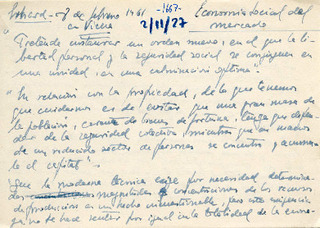 Erhard - 8 de febrero 1961 -1667-
en Viena 2/11/27 Economía social del mercado
"Pretende instaurar un orden nuevo, en el que la li-
bertad personal y la seguridad social se conjuguen en
una unidad, en una culminación óptima."
"En relación con la propiedad, de lo que tenemos
que cuidarnos es de evitar que una gran masa de
la población, carente de bienes de fortuna, tenga que depen-
der de la seguridad colectiva mientras que en manos
de un reducido sector de personas se concentra y acumu-
la el capital"
Que la moderna técnica exige por necesidad determina-
das magnitudes y concentraciones de los recursos
de producción es un hecho incuestionable, pero esta exigencia
no se hace sentir por igual en la totalidad de la